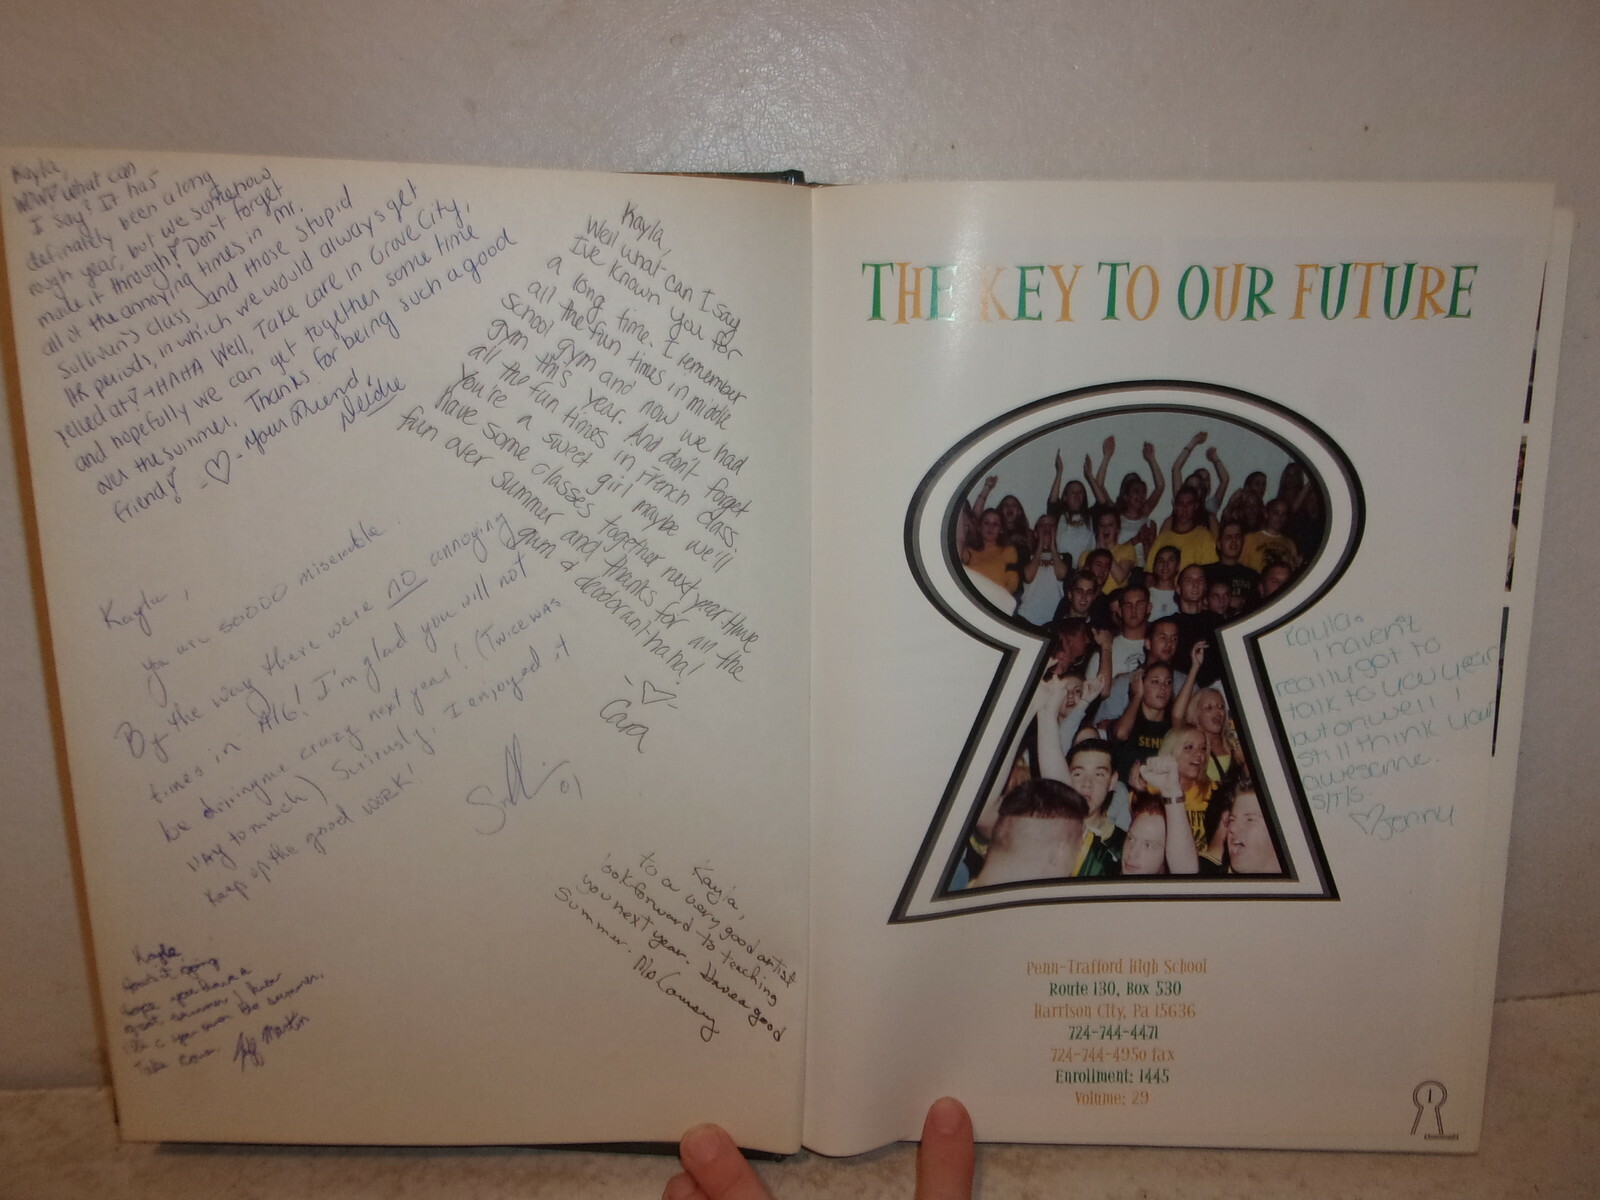 Kayla,
WOW! what can
I say? It has
definately been a long
rough year, but we somehow
made it through! Don't forget
all of the annoying times in Mr.
Sullivan's class and those stupid
AR periods, in which we would always get
yelled at! HAHA Well, Take care in Grove City,
and hopefully we can get together some time
over the summer. Thanks for being such a good
friend! -♡- your friend,
Kayla,
Well what can I say
I've known you for
a long time. I remember
all the fun times in middle
school gym and now we had
gym this year. And don't forget
all the fun times in French class.
You're a sweet girl maybe we'll
have some classes together next year. Have
fun over summer and thanks for all the
gum & deodorant-haha!
-♡-
Cara
Kayla,
You are soooo miserable.
By the way there were no annoying
times in A16! I'm glad you will not
be driving me crazy next year! (Twice was
way to much) Seriously, I enjoyed it
Keep up the good work!
01
Kayla,
to a very good artist
look forward to teaching
you next year. Have a good
Summer.
Kayla
great summer
Take care.
THE KEY TO OUR FUTURE
SENI
Kayla.
I haven't
really got to
talk to you year
but on well I
still think your
awesome.
S/T/S.
♡Jenny
Penn-Trafford High School
Route 130, Box 530
Harrison City, Pa 15636
724-744-4471
724-744-4950 fax
Enrollment: 1445
Volume: 29
1